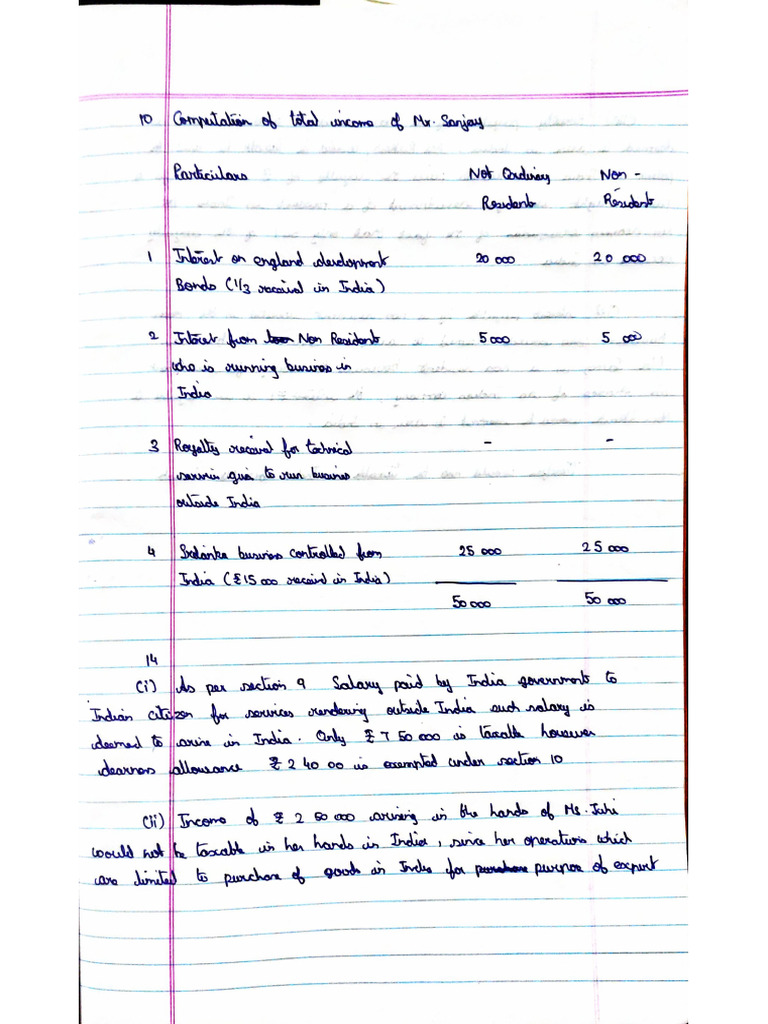 10 Computation of total income of Mr. Sanjay
Particulars Not Ordinary Non -
Resident Resident
1 Interest on england development 20 000 20 000
Bonds (1/3 received in India)
2 Interest from Non Resident 5 000 5 000
who is running business in
India
3 Royalty received for technical - -
outside India
4 Srilanka business controlled from 25 000 25 000
India (₹ 15 000 received in India)
50 000 50 000
14
(i) As per section 9 Salary paid by India government to
Indian citizen for services rendering outside India such salary is
deemed to arise in India. Only ₹ 7 50 000 is taxable however
dearness allowance ₹ 2 40 00 is exempted under section 10
(ii) Income of ₹ 2 50 000 arising in the hands of Ms. Juhi
would not be taxable in her hands in India, since her operations which
are limited to purchase of goods in India for purpose of export